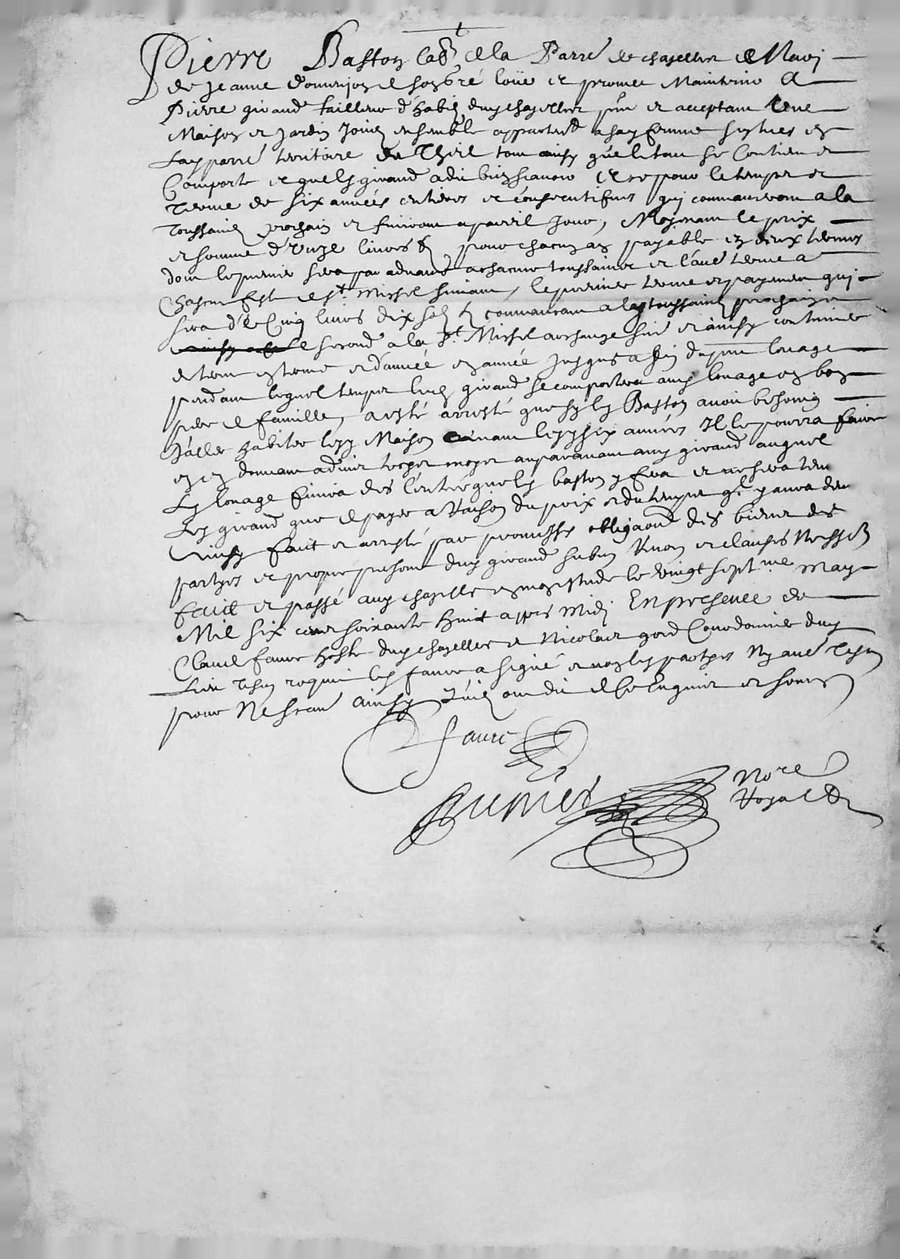 Pierre Baston lab^r de la Parr^e de chapellier et Mary
de Jeanne Domerjon de son gré loüe et promet Maintenir A
Pierre giraud tailleur d'habis dud chapellier p^nt et acceptant Une
Maison et Jardin Joinct ensemble appartent a sa femme scitues en
Lad parre teritoire de tout ainsy quelle tout se Contient et
Comporte et que led giraud a dit bien scavoir Et ce pour le temps et
terme de six années entieres et consecutifves quy commanceront a la
toussainct prochain et finiront a pareil Jour, Moyenant le prix
et somme d'Unze livres pour chacun an payable en deux termes
dont le premier sera par advance a chacune toussainct et l'autre terme a
Chacune feste de S^t Michel suivant, le premier terme et payement quy
sera de Cinq livres dix sols commancera a la toussainct prochaine
le second a la S^t Michel archange suiv et ainsy continuer
de terme en terme et d'année en année Jusques a fin du p^nt louage
pendant lequel temps led giraud se comportera aud louage en bon
pere de famille, a esté arresté que sy led Baston avoit besoing
d'aller habiter lesd Maison avant lesd six années Il le pourra faire
en advertir troys moys auparavant aud giraud auquel
Led louage finira des l'entrée que led baston y fera et ne sera tenu
Led giraud que de payer a Raison du prix et du temps q^l y aura demeuré
Ainsy faict et arresté par promesses obligaon des biens des
partyes et propre persone dud giraud submi^n Renon et clauses Necess^res
faict et passé aud chapellier en mon estude le vingt sept^me May
Mil six cent soixante huict apres Midi En presence de
Claude favre hoste dud chapellier et Nicolas gord Courdonnier dud
Lieu tesm requis led favre a signé et non led partyes Ny autre tesm
pour Ne scavoir ainsy qu'ils ont dit de Ce Enquis et sommes
favre
No^re
Royal